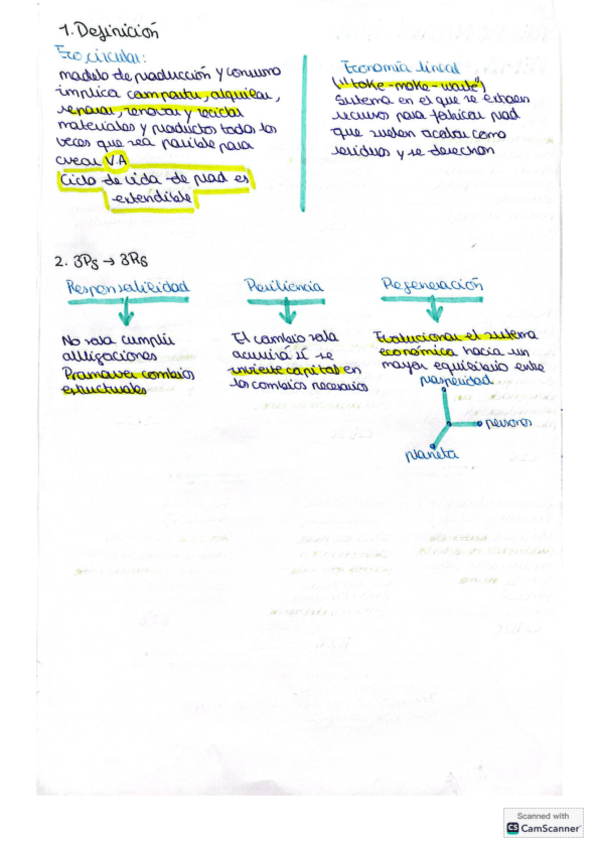 1. Definición
Eco circular:
modelo de producción y consumo
implica compartir, alquilar,
reparar, renovar y reciclar
materiales y productos todas las
veces que sea posible para
crear V.A
Ciclo de vida de prod es
extendible
Economía lineal
("take-make-waste")
Sistema en el que se extraen
recursos para fabricar prod
que suelen acabar como
residuos y se desechan
2. 3Ps → 3Rs
Responsabilidad
No solo cumplir
obligaciones
Promover cambios
estructurales
Resiliencia
El cambio solo
ocurrirá si se
invierte capital en
los cambios necesarios
Regeneración
Evolucionar el sistema
económico hacia un
mayor equilibrio entre
prosperidad
personas
planeta
Scanned with
CS CamScanner